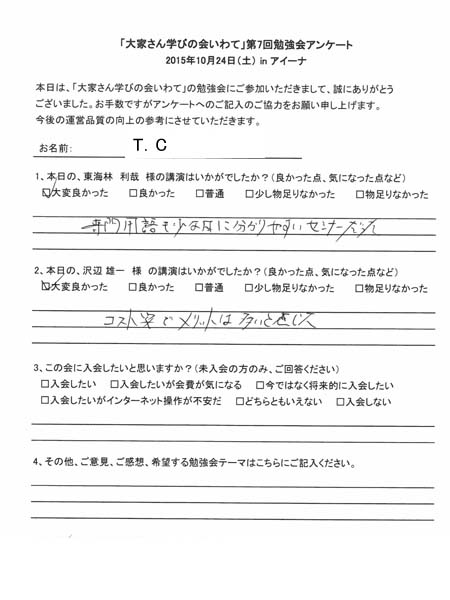 「大家さん学びの会いわて」第7回勉強会アンケート
2015年10月24日(土) in アイーナ
本日は、「大家さん学びの会いわて」の勉強会にご参加いただきまして、誠にありがとう
ございました。お手数ですがアンケートへのご記入のご協力をお願い申し上げます。
今後の運営品質の向上の参考にさせていただきます。
お名前: T. C
1、本日の、東海林 利哉 様の講演はいかがでしたか?(良かった点、気になった点など)
☑大変良かった □良かった □普通 □少し物足りなかった □物足りなかった
専門用語も少な目に分かりやすいセミナーだった
2、本日の、沢辺 雄一 様 の講演はいかがでしたか?(良かった点、気になった点など)
☑大変良かった □良かった □普通 □少し物足りなかった □物足りなかった
コスト安でメリットは多いと感じた
3、この会に入会したいと思いますか?(未入会の方のみ、ご回答ください)
□入会したい □入会したいが会費が気になる □今ではなく将来的に入会したい
□入会したいがインターネット操作が不安だ □どちらともいえない □入会しない
4、その他、ご意見、ご感想、希望する勉強会テーマはこちらにご記入ください。